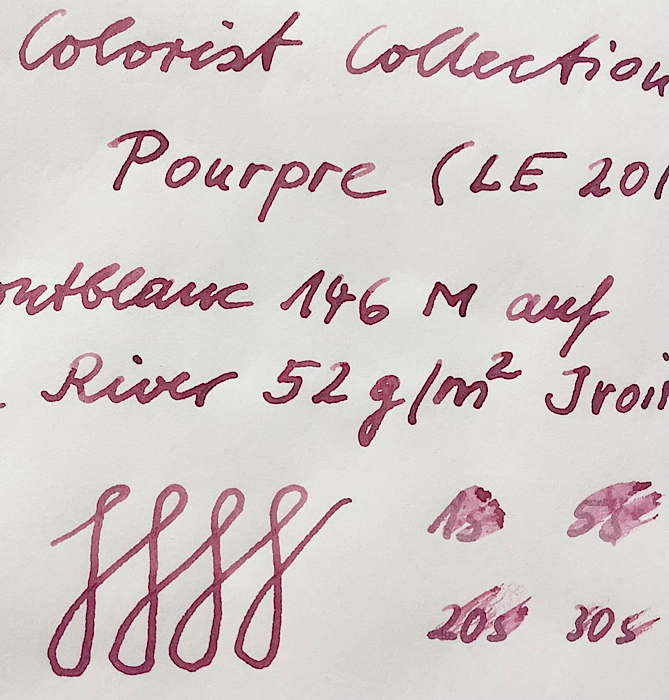 Colorist Collection
Pourpre (LE 201
ontblanc 146 M auf
. River 52 g/m² Iroi
1s 5s
20s 30s